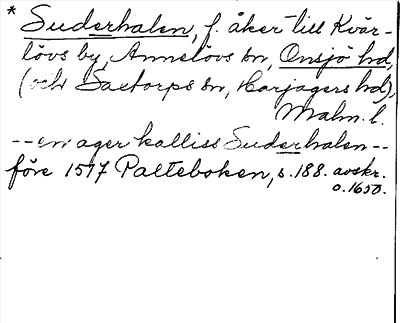 * Suderhalen, f. åker till Kvär-
lövs by, Annelövs sn, Onsjö hd,
(och Saxtorps sn, Harjagers hd),
Malm. l.
-- en ager kalliss Suderhalen --
före 1517 Palteboken, s. 188. avskr.
o. 1650.